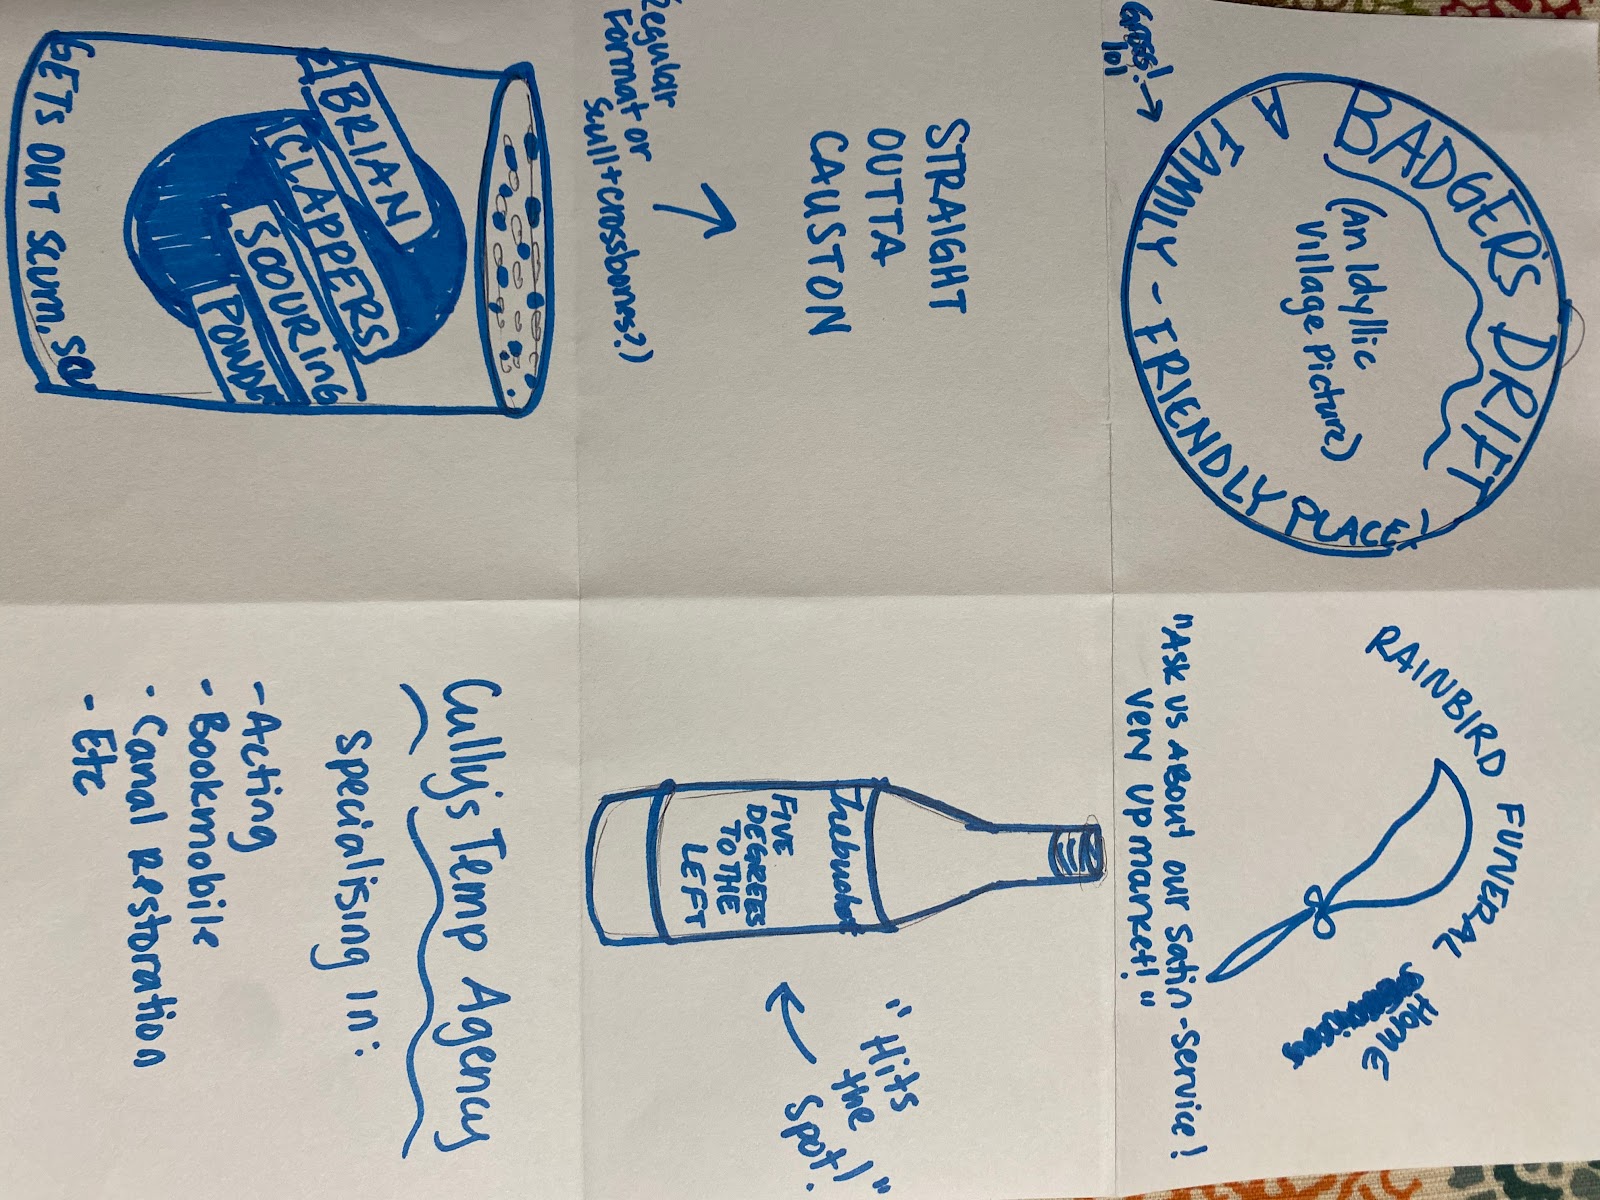 lol
BADGER'S DRIFT
(An Idyllic
Village Picture)
A FAMILY - FRIENDLY PLACE!
RAINBIRD FUNERAL HOME
"Ask us about our satin-service!
Very upmarket!"
STRAIGHT
OUTTA
CAUSTON
Regular
Format or
Scull+crossbones?)
"Hits
the
Spot!"
FIVE
DEGREES
TO THE
LEFT
BRIAN
CLAPPERS
SCOURING
POWDE
GETS OUT SCUM, SCU
Cully's Temp Agency
Specialising in:
- Acting
- Bookmobile
- Canal Restoration
- Etc